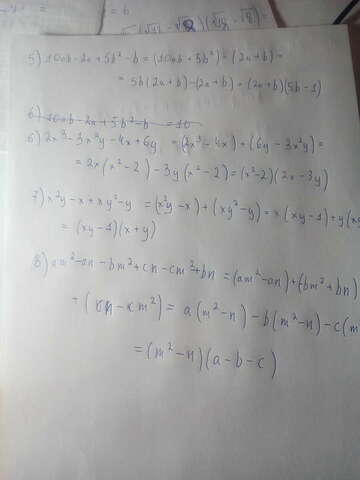 = b
5) 10ab-2a+5b²-b = (10ab+5b²) - (2a+b) =
= 5b(2a+b)-(2a+b) = (2a+b)(5b-1)
6) 10ab-2a+5b²-b = 10
6) 2x³-3x²y-4x+6y = (2x³-4x)+(6y-3x²y) =
= 2x(x²-2)-3y(x²-2) = (x²-2)(2x-3y)
7) x²y-x+xy²-y = (x²y-x)+(xy²-y) = x(xy-1)+y(xy
= (xy-1)(x+y)
8) am²-an-bm²+cn-cm²+bn = (am²-an)+(-bm²+bn)
+(cn-cm²) = a(m²-n)-b(m²-n)-c(m
= (m²-n)(a-b-c)